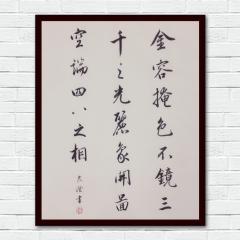 金容掩色不鏡三
千之光麗象開圖
空端四八之相